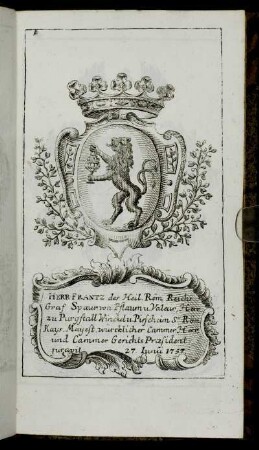 HERR FRANTZ des Heil. Röm. Reichs
Graf Spaur von Pflaum u. Valair, Herr
zu Purgstall Winckel u. Pirschaim Sr. Röm.
Kays. Mayest. wurcklicher Cammer Herr
und Cammer Gerichts Præsident
juravit 27 Junii 1757